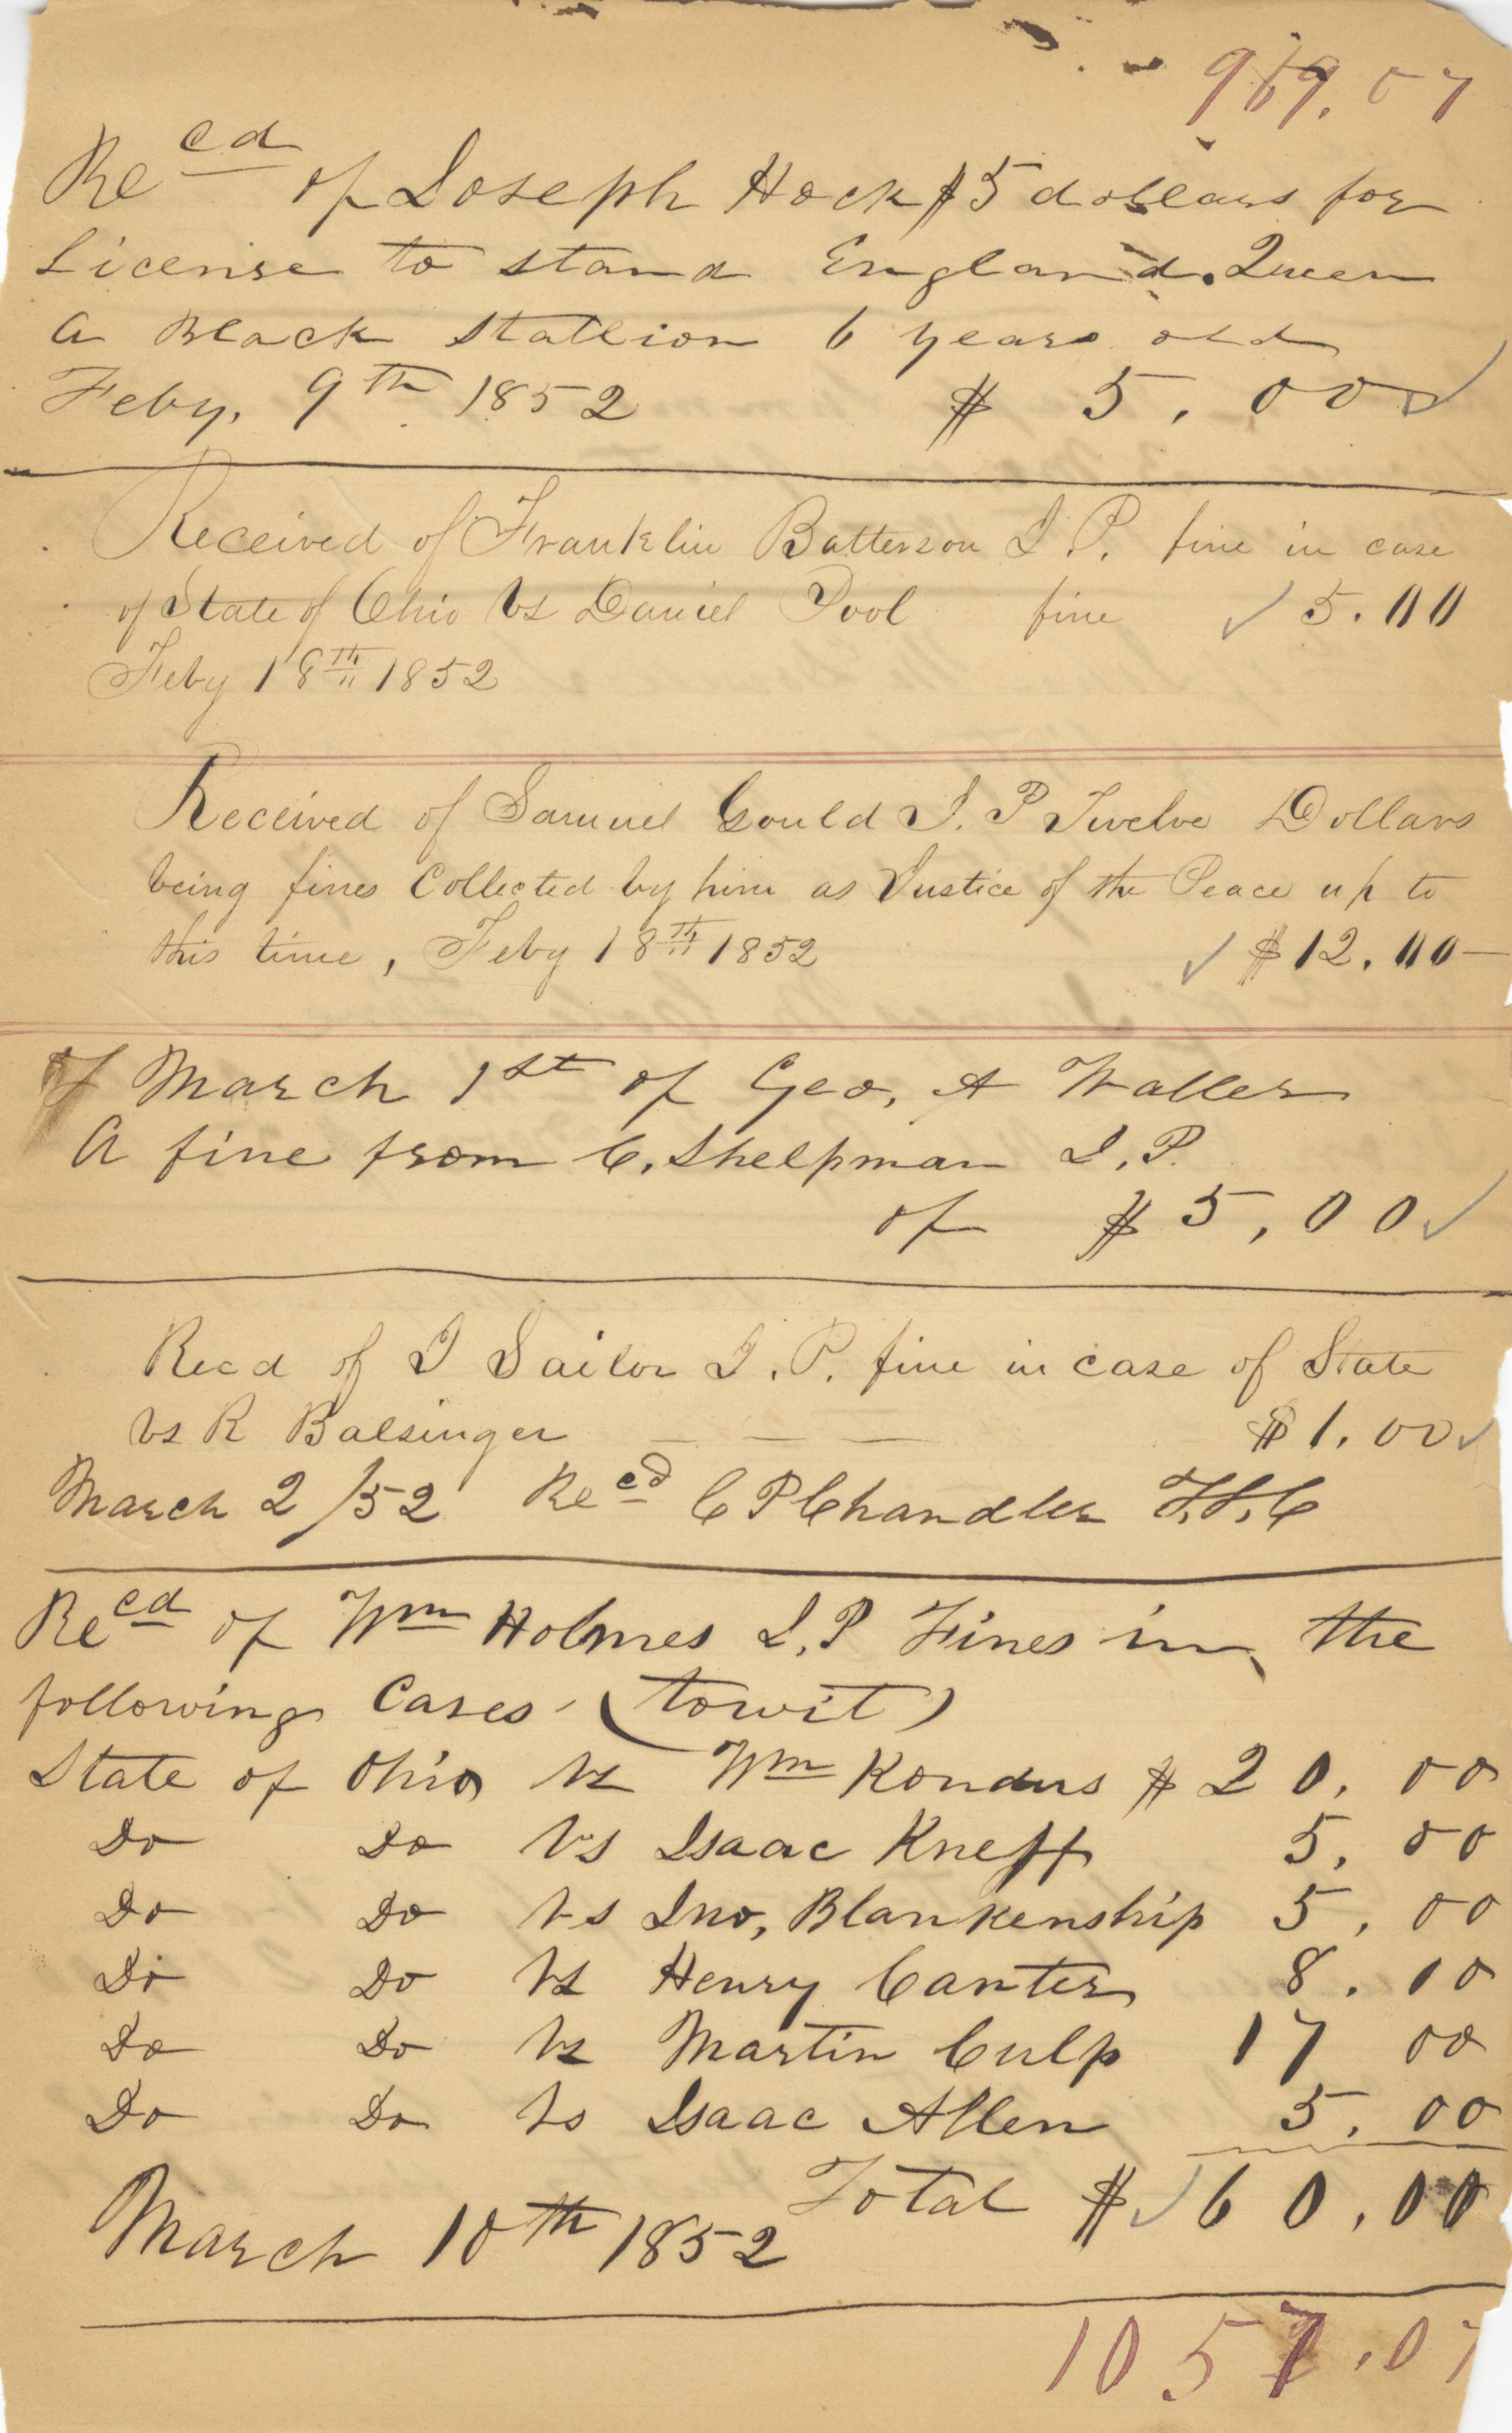 969.07
Recd of Joseph Hock $5 dollars for
License to stand England. Queen
a Black Stallion 6 years old
Feby. 9th 1852 $ 5.00
Received of Franklin Batterson J. P. fine in case
of State of Ohio Vs Daniel Pool fine 5.00
Feby 18th 1852
Received of Samuel Gould J. P Twelve Dollars
being fines Collected by him as Justice of the Peace up to
this time, Feby 18th 1852 $12.00
March 1st of Geo, A Waller
A fine from C. Shelpman J. P.
of $ 5,00
Recd of J Sailor J. P. fine in case of State
Vs R Balsinger $1.00
March 2/52 Recd C P Chandler
Recd of Wm Holmes J. P Fines in the
following Cases (towit)
State of Ohio Vs Wm Kondus $ 20.00
Do Do Vs Isaac Kneff 5.00
Do Do Vs Jno, Blankenship 5.00
Do Do Vs Henry Canter 8.00
Do Do Vs Martin Culp 17 00
Do Do Vs Isaac Allen 5.00
Total $ 60.00
March 10th 1852
1057.07